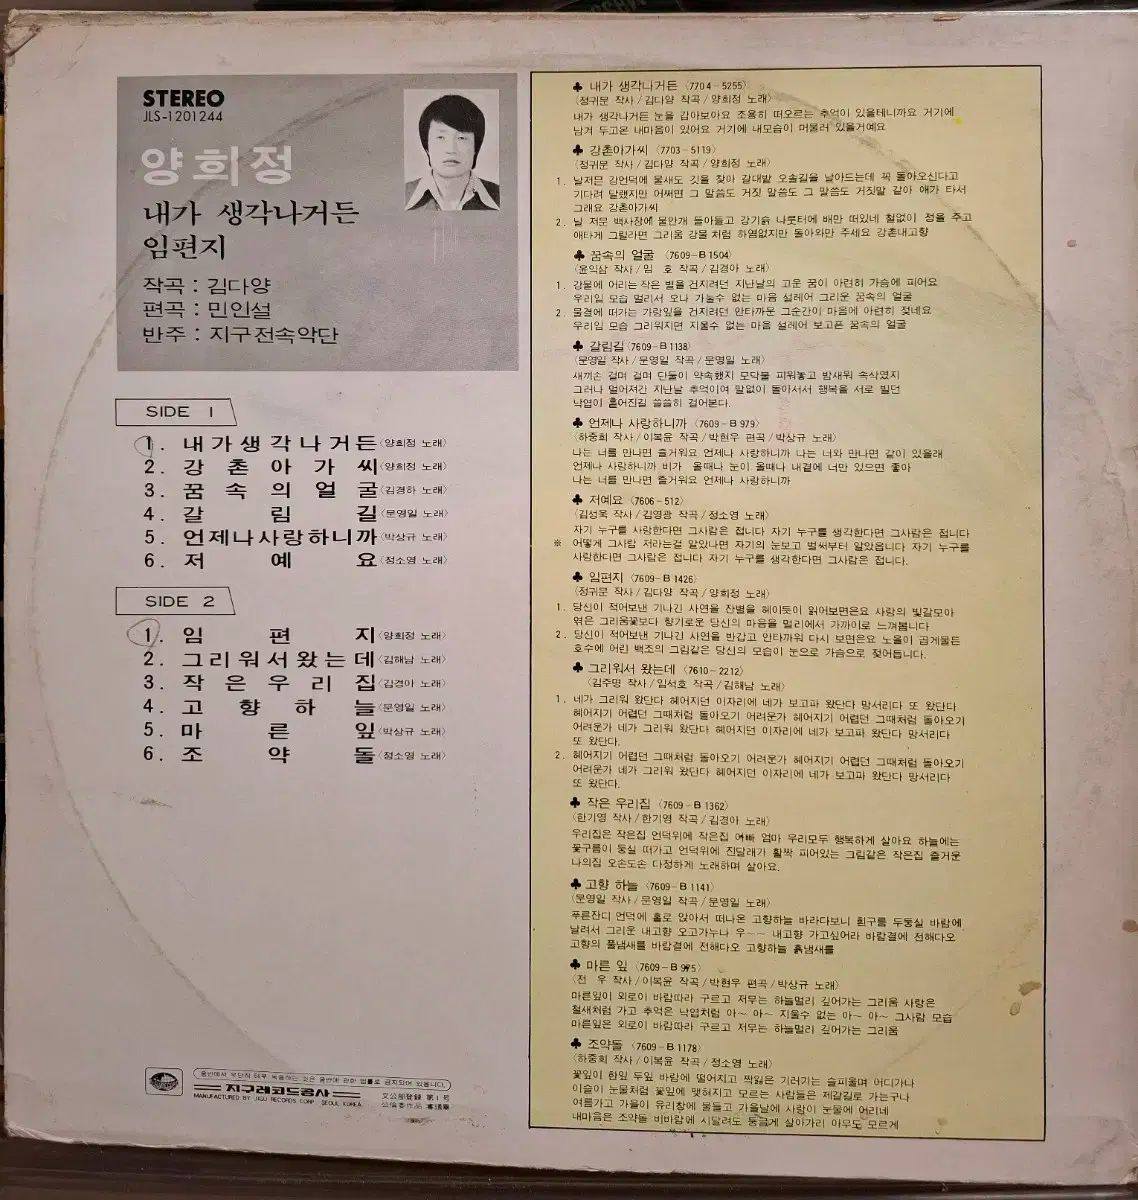 STEREO
JLS-1201244
양희정
내가 생각나거든
임편지
작곡 : 김다양
편곡 : 민인설
반주 : 지구전속악단
SIDE 1
1. 내가생각나거든〈양희정 노래〉
2. 강촌아가씨〈양희정 노래〉
3. 꿈속의얼굴〈김경하 노래〉
4. 갈림길〈문영일 노래〉
5. 언제나사랑하니까〈박상규 노래〉
6. 저예요〈정소영 노래〉
SIDE 2
1. 임편지〈양희정 노래〉
2. 그리워서왔는데〈김해남 노래〉
3. 작은우리집〈김경아 노래〉
4. 고향하늘〈문영일 노래〉
5. 마른잎〈박상규 노래〉
6. 조약돌〈정소영 노래〉
음반에서 무단히 테푸 녹음하는 것은 음반에 관한 법률로 금지되어 있읍니다.
지구레코드공사
MANUFACTURED BY JIGU RECORDS CORP. SEOUL KOREA.
文公部登録 第1号
公倫委作品 審議畢
♣ 내가 생각나거든 〈7704-5255〉
〈정귀문 작사/김다양 작곡/양희정 노래〉
내가 생각나거든 눈을 감아보아요 조용히 떠오르는 추억이 있을테니까요 거기에
남겨 두고온 내마음이 있어요 거기에 내모습이 머물러 있을거예요
♣ 강촌아가씨 〈7703-5119〉
〈정귀문 작사/김다양 작곡/양희정 노래〉
1. 날저믄 강언덕에 물새도 깃을 찾아 갈대밭 오솔길을 날아드는데 꼭 돌아오신다고
기다려 달랬지만 어쩌면 그 말씀도 거짓 말씀도 그 말씀도 거짓말 같아 애가 타서
그래요 강촌아가씨
2. 날 저문 백사장에 물안개 돌아들고 강기슭 나룻터에 배만 떠있네 철없이 정을 주고
애타게 그릴라면 그리움 강물 처럼 하염없지만 돌아와만 주세요 강촌내고향
♣ 꿈속의 얼굴 〈7609-B1504〉
〈윤익삼 작사/임 호 작곡/김경아 노래〉
1. 강물에 어리는 작은 별을 건지려던 지난날의 고운 꿈이 아련히 가슴에 피어요
우리임 모습 멀리서 오나 가눌수 없는 마음 설레어 그리운 꿈속의 얼굴
2. 물결에 떠가는 가랑잎을 건지려던 안타까운 그순간이 마음에 아련히 젖네요
우리임 모습 그리워지면 지울수 없는 마음 설레어 보고픈 꿈속의 얼굴
♣ 갈림길 〈7609-B1138〉
〈문영일 작사/문영일 작곡/문영일 노래〉
새끼손 걸며 걸며 단둘이 약속했지 모닥불 피워놓고 밤새워 속삭였지
그러나 멀어져간 지난날 추억이여 말없이 돌아서서 행복을 서로 빌던
낙엽이 흩어진길 쓸쓸히 걸어본다.
♣ 언제나 사랑하니까 〈7609-B979〉
〈하중희 작사/이복윤 작곡/박현우 편곡/박상규 노래〉
나는 너를 만나면 즐거워요 언제나 사랑하니까 나는 너와 만나면 같이 있을래
언제나 사랑하니까 비가 올때나 눈이 올때나 내곁에 너만 있으면 좋아
나는 너를 만나면 즐거워요 언제나 사랑하니까
♣ 저예요 〈7606-512〉
〈김성욱 작사/김영광 작곡/정소영 노래〉
자기 누구를 사랑한다면 그사람은 접니다 자기 누구를 생각한다면 그사람은 접니다
※ 어떻게 그사람 저라는걸 알았나면 자기의 눈보고 벌써부터 알았읍니다 자기 누구를
사랑한다면 그사람은 접니다 자기 누구를 생각한다면 그사람은 접니다.
♣ 임편지 〈7609-B1426〉
〈정귀문 작사/김다양 작곡/양희정 노래〉
1. 당신이 적어보낸 기나긴 사연을 잔별을 헤이듯이 읽어보면은요 사랑의 빛갈모아
엮은 그리움꽃보다 향기로운 당신의 마음을 멀리에서 가까이로 느껴봅니다
2. 당신이 적어보낸 기나긴 사연을 반갑고 안타까워 다시 보면은요 노을이 곱게물든
호수에 어린 백조의 그림같은 당신의 모습이 눈으로 가슴으로 젖어듭니다.
♣ 그리워서 왔는데 〈7610-2212〉
〈김주명 작사/임석호 작곡/김해남 노래〉
1. 네가 그리워 왔단다 헤어지던 이자리에 네가 보고파 왔단다 망서리다 또 왔단다
헤어지기 어렵던 그때처럼 돌아오기 어려운가 헤어지기 어렵던 그때처럼 돌아오기
어려운가 네가 그리워 왔단다 헤어지던 이자리에 네가 보고파 왔단다 망서리다
또 왔단다.
2. 헤어지기 어렵던 그때처럼 돌아오기 어려운가 헤어지기 어렵던 그때처럼 돌아오기
어려운가 네가 그리워 왔단다 헤어지던 이자리에 네가 보고파 왔단다 망서리다
또 왔단다.
♣ 작은 우리집 〈7609-B1362〉
〈한기영 작사/한기영 작곡/김경아 노래〉
우리집은 작은집 언덕위에 작은집 아빠 엄마 우리모두 행복하게 살아요 하늘에는
꽃구름이 둥실 떠가고 언덕위에 진달래가 활짝 피어있는 그림같은 작은집 즐거운
나의집 오손도손 다정하게 노래하며 살아요.
♣ 고향 하늘 〈7609-B1141〉
〈문영일 작사/문영일 작곡/문영일 노래〉
푸른잔디 언덕에 홀로 앉아서 떠나온 고향하늘 바라다보니 흰구름 두둥실 바람에
날려서 그리운 내고향 오고가누나 우~~ 내고향 가고싶어라 바람결에 전해다오
고향의 풀냄새를 바람결에 전해다오 고향하늘 흙냄새를
♣ 마른 잎 〈7609-B975〉
〈전 우 작사/이복윤 작곡/박현우 편곡/박상규 노래〉
마른잎이 외로이 바람따라 구르고 저무는 하늘멀리 깊어가는 그리움 사랑은
철새처럼 가고 추억은 낙엽처럼 아~ 아~ 지울수 없는 아~ 아~ 그사람 모습
마른잎은 외로이 바람따라 구르고 저무는 하늘멀리 깊어가는 그리움
♣ 조약돌 〈7609-B1178〉
〈하중희 작사/이복윤 작곡/정소영 노래〉
꽃잎이 한잎 두잎 바람에 떨어지고 짝잃은 기러기는 슬피울며 어디가나
이슬이 눈물처럼 꽃잎에 맺혀지고 모르는 사람들은 제갈길로 가는구나
여름가고 가을이 유리창에 물들고 가을날에 사랑이 눈물에 어리네
내마음은 조약돌 비바람에 시달려도 둥글게 살아가리 아무도 모르게